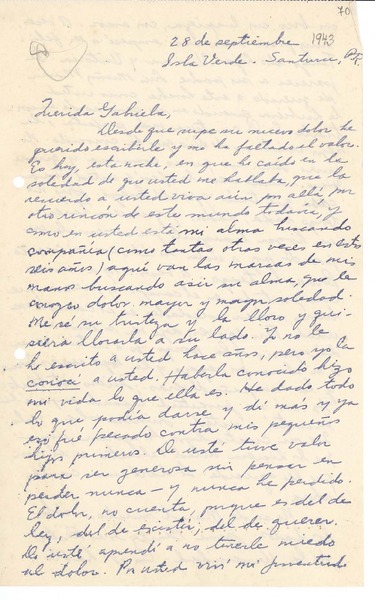 70
28 de septiembre 1943
Isla Verde. Santurce, P.R.
Querida Gabriela,
Desde que supe su nuevo dolor he
querido escribirle y me ha faltado el valor.
Es hoy, esta noche, en que he caído en la
soledad de que usted me hablaba, que la
recuerdo a usted viva aún por allá por
otro rincón de este mundo todavía, y
como en usted está mi alma buscando
compañía (como tantas otras veces en estos
seis años) aquí van las marcas de mis
manos buscando asir su alma, que la
coroge dolor mayor y mayor soledad.
Me sé su tristeza y la lloro y qui-
siera llorarla a su lado. Yo no le
he escrito a usted hace años, pero yo la
conocí a usted. Haberla conocido hizo
mi vida lo que ella es. He dado todo
lo que podía darse y di más y ya
eso fué pecado contra mis pequeños
hijos primeros. De usté tuve valor
para ser generosa sin pensar en
perder nunca — y nunca he perdido.
El dolor, no cuenta, porque es del de
ley, del de existir, del de querer.
De usté aprendí a no tenerle miedo
al dolor. Por usted viví mi juventud